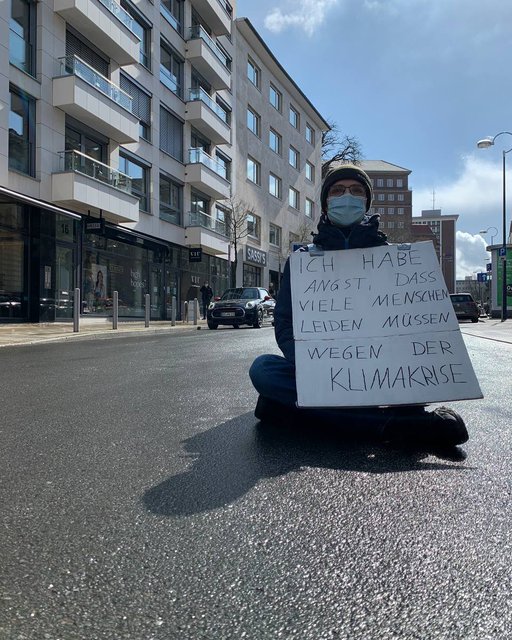 ICH HABE
ANGST, DASS
VIELE MENSCHEN
LEIDEN MÜSSEN
WEGEN DER
KLIMAKRISE
SASSI'S
16